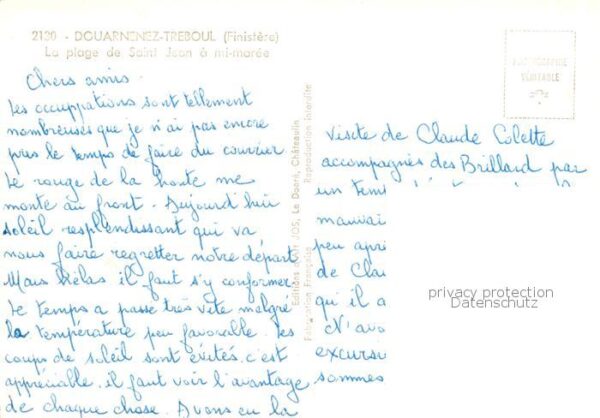 2130 - DOUARNENEZ-TREBOUL (Finistère)
La plage de Saint Jean à mi-marée
Chers amis.
Les occuppations sont tellement
nombreuses que je n'ai pas encore
pris le temps de faire du courrier
Le rouge de la honte me
monte au front. Aujourd'hui
soleil resplendissant qui va
nous faire regretter notre départ
Mais hélas il faut s'y conformer.
Le temps a passé très vite malgré
la température peu favorable. les
coups de soleil sont évités. c'est
appréciable. il faut voir l'avantage
de chaque chose. Avons eu la
Editions d'Art JOS, Le Doaré, Châteaulin
Fabrication Française Reproduction interdite
PHOTOGRAPHIE
VÉRITABLE
visite de Claude Colette
accompagnés des Brillard par
un tem
mauvai
peu apri
de Cla
qui il a
N'avo
excursi
sommes
privacy protection
Datenschutz